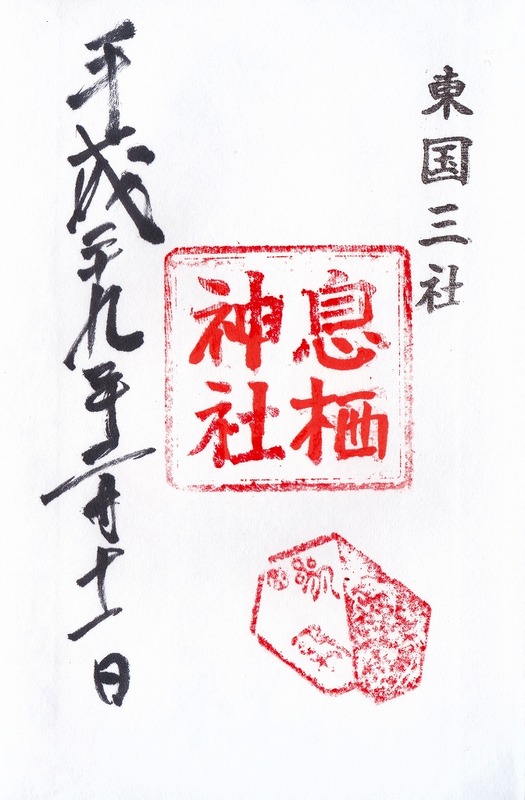 東国三社
息栖
神社
平成二十九年一月十一日